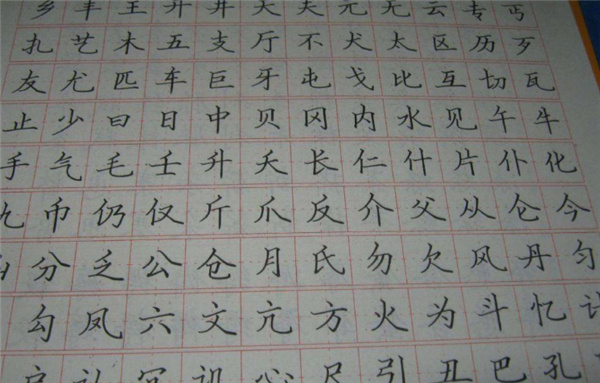 乡丰王开井天夫元无云专丐
扎艺木五支厅不犬太区历歹
友尤匹车巨牙屯戈比互切瓦
止少曰日中贝冈内水见午牛
手气毛壬升夭长仁什片仆化
仇币仍仅斤爪反介父从仑今
凶分乏公仓月氏勿欠风丹匀
勾凤六文亢方火为斗忆计
户认冗讥心尺引丑巴孔